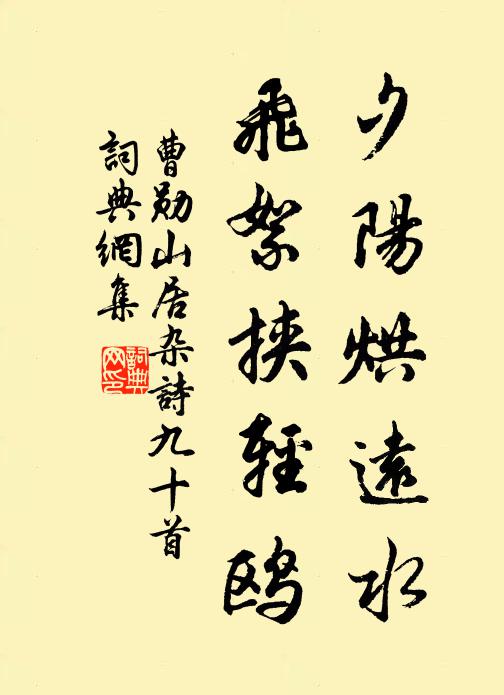 夕陽烘遠水
飛絮挾輕鸥
曹勋山居杂詩九十首
詞典網集
詞典網印